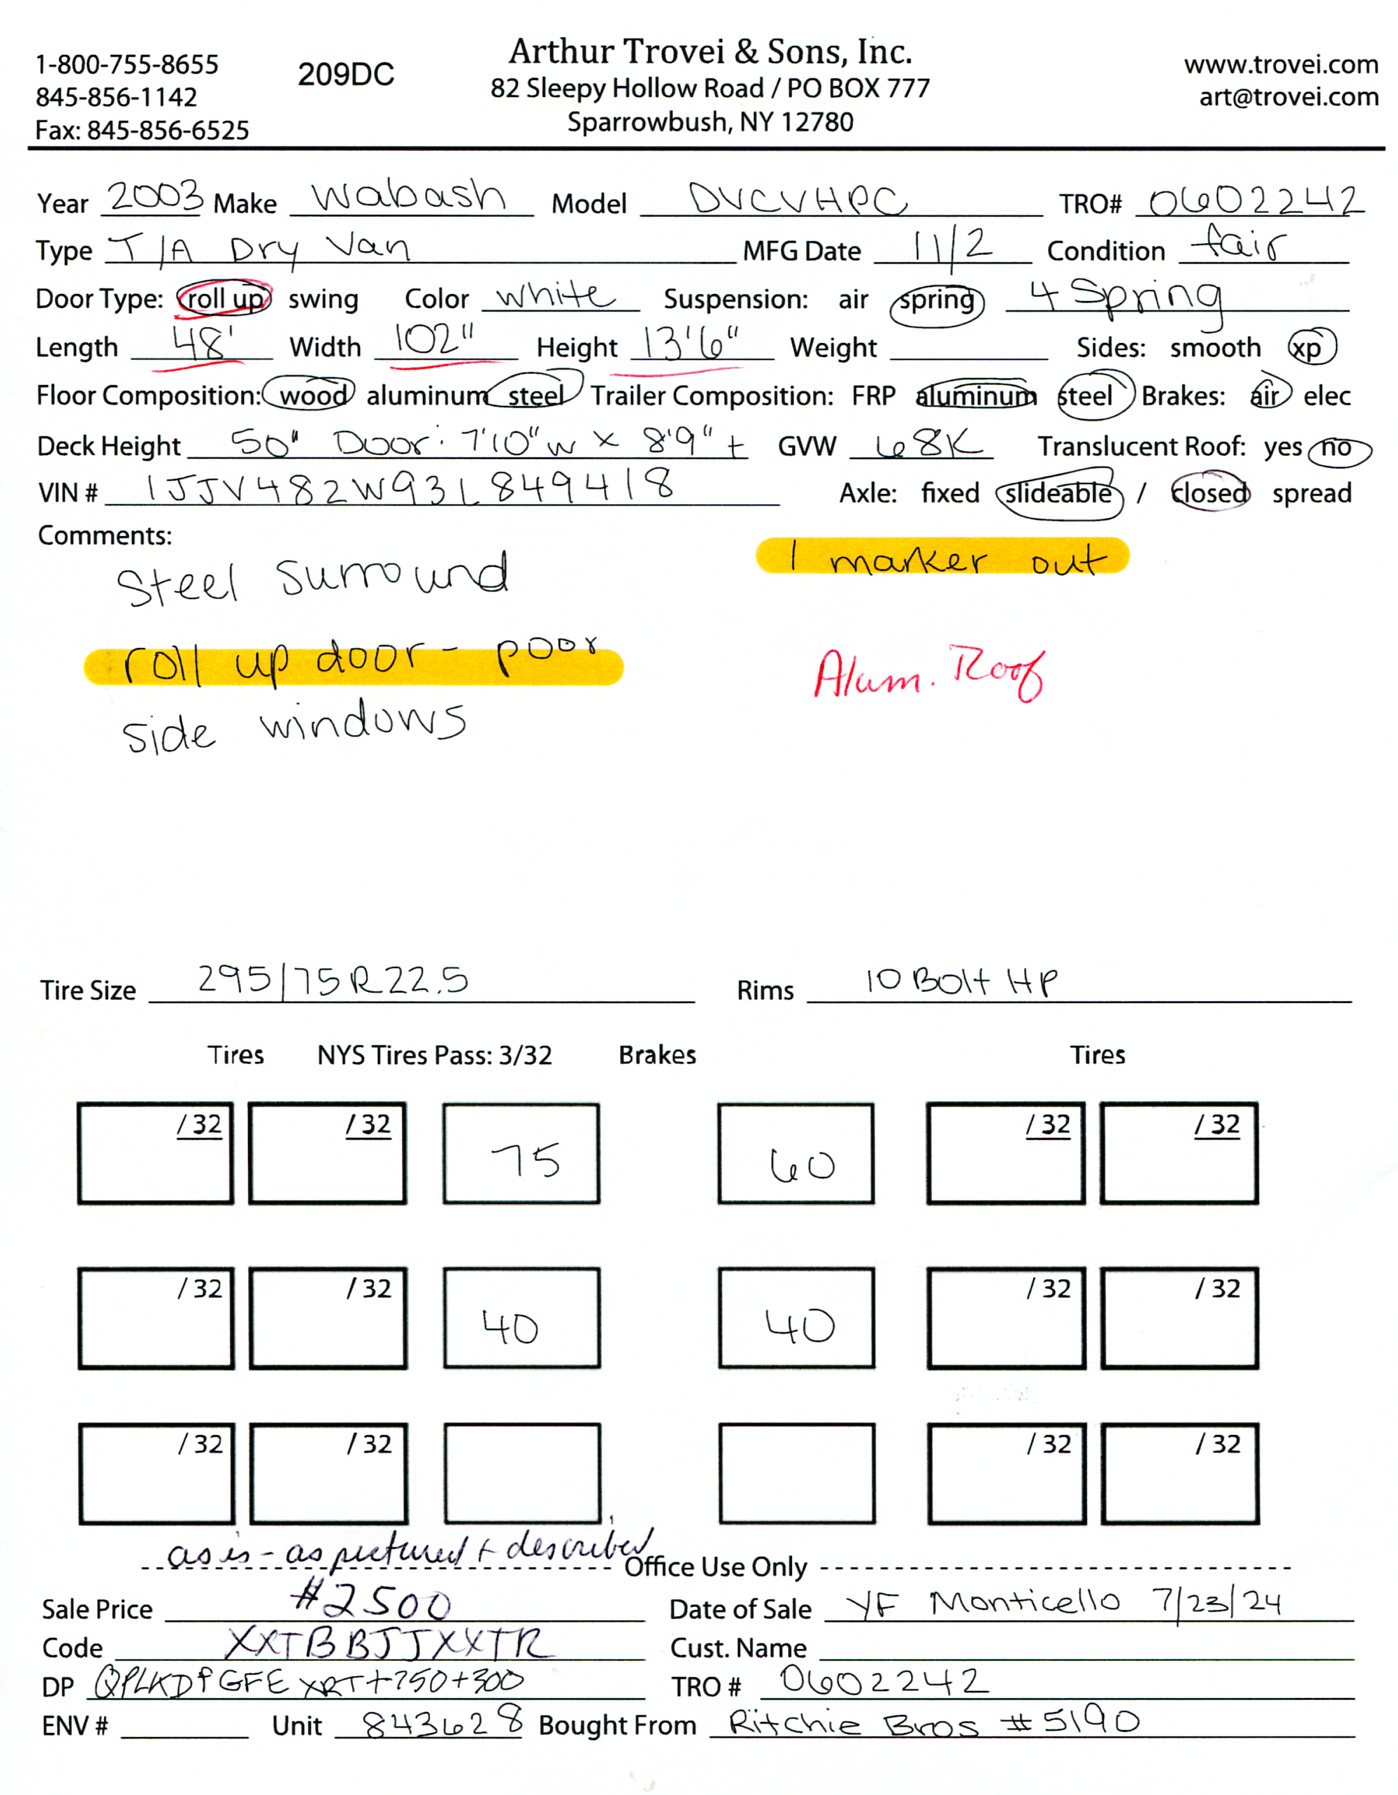 1-800-755-8655
845-856-1142
Fax: 845-856-6525
209DC
Arthur Trovei & Sons, Inc.
82 Sleepy Hollow Road / PO BOX 777
Sparrowbush, NY 12780
www.trovei.com
art@trovei.com
Year 2003 Make Wabash Model DVCVHPC TRO# 0602242
Type T/A Dry Van MFG Date 11/2 Condition fair
Door Type: roll up swing Color white Suspension: air spring 4 Spring
Length 48' Width 102" Height 13'6" Weight Sides: smooth xp
Floor Composition: wood aluminum steel Trailer Composition: FRP aluminum steel Brakes: air elec
Deck Height 50" Door: 7'10" w x 8'9" t GVW 68K Translucent Roof: yes no
VIN # 1JJV482W93L849418 Axle: fixed slideable / closed spread
Comments:
Steel surround
1 marker out
roll up door - poor
Alum. Roof
side windows
Tire Size 295/75R22.5 Rims 10 Bolt HP
Tires NYS Tires Pass: 3/32 Brakes Tires
/32 /32 75 60 /32 /32
/32 /32 40 40 /32 /32
/32 /32 /32 /32
as is - as pictured + described
Office Use Only
Sale Price #2500 Date of Sale YF Monticello 7/23/24
Code XXTBBJJXXTR Cust. Name
DP QPLKDPGFE XRT+750+300 TRO # 0602242
ENV # Unit 843628 Bought From Ritchie Bros #5190